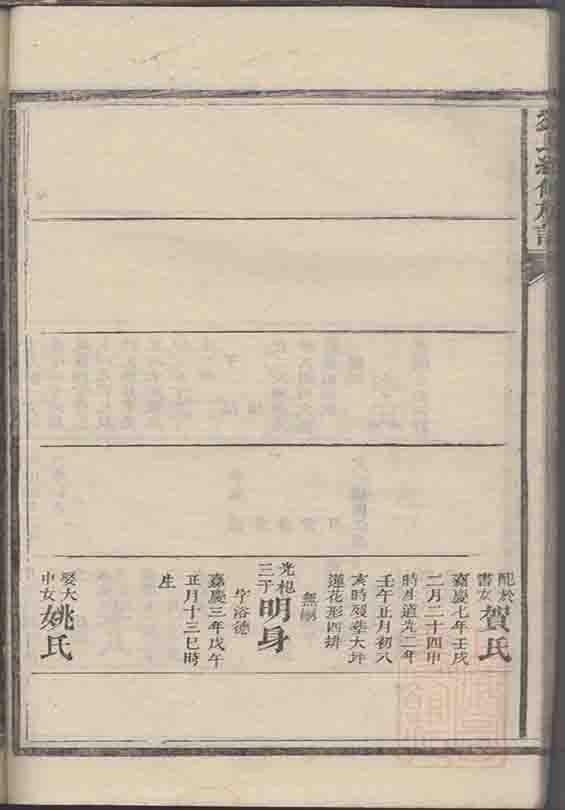 配於書女賀氏
嘉慶七年壬戌
二月二十四申
時生道光二年
壬午正月初八
亥時歿葬大坪
蓮花形酉排
無嗣
光杞三子明身
字浴德
嘉慶三年戊午
正月十三巳時
生
娶大中女姚氏